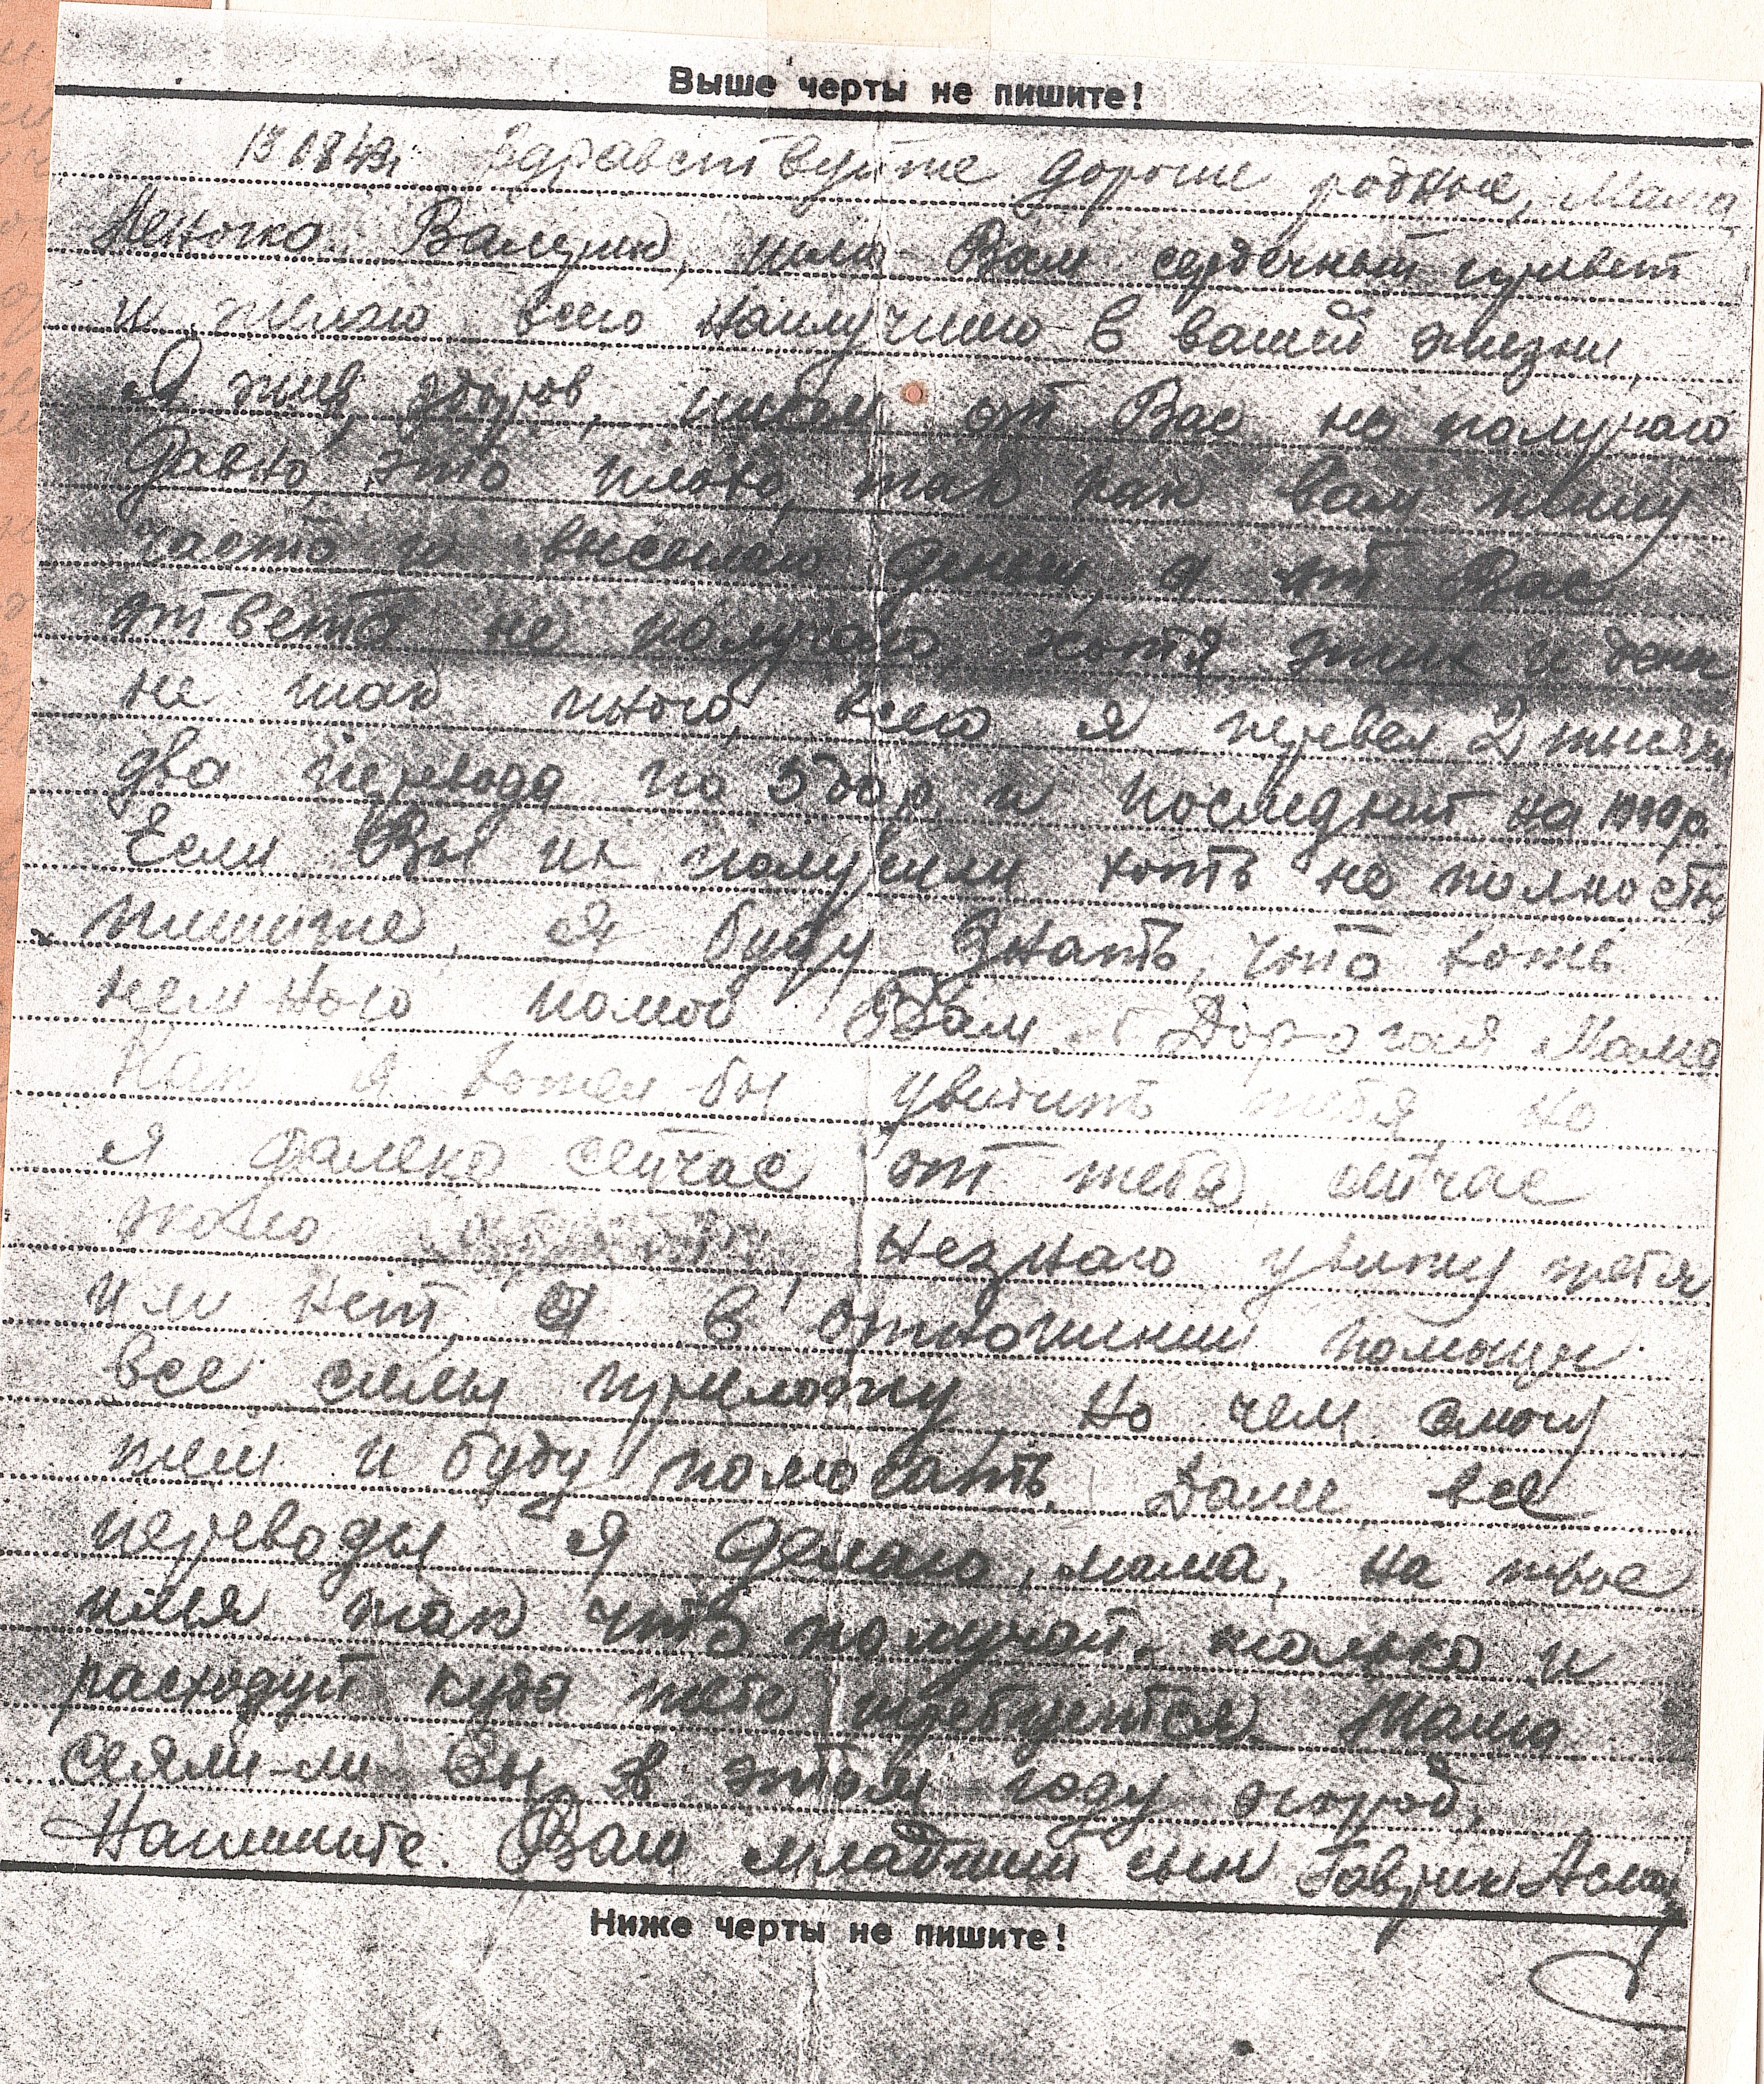 Выше черты не пишите!
13.08.43г. Здравствуйте дорогие родные, Мама,
Валерик, шлю Вам сердечный привет
и желаю всего наилучшего в вашей жизни,
Я жив, здоров, писем от Вас не получаю
давно это плохо, так как вам пишу
часто и высылаю деньги, а от Вас
ответа не получаю, хотя этих и денег
не так много, всего я перевел 2 тысячи
два перевода по 500 р и последний на 1000 р.
Если Вы их получили хоть не полностью
пишите, я буду знать, что хоть
немного помог Вам. Дорогая Мама
Как я хотел-бы увидить тебя, но
я далеко сейчас от тебя, сейчас
около незнаю увижу тебя
или нет, а в отношении помощи
все силы приложу, но чем смогу
тем и буду помогать. Далее все
переводы я делаю, мама, на твое
имя так что получай только и
расходуй куда тебе требуется. Мама
сеяли-ли Вы в этом году огород,
Напишите. Ваш младший сын Гаврик
Ниже черты не пишите!